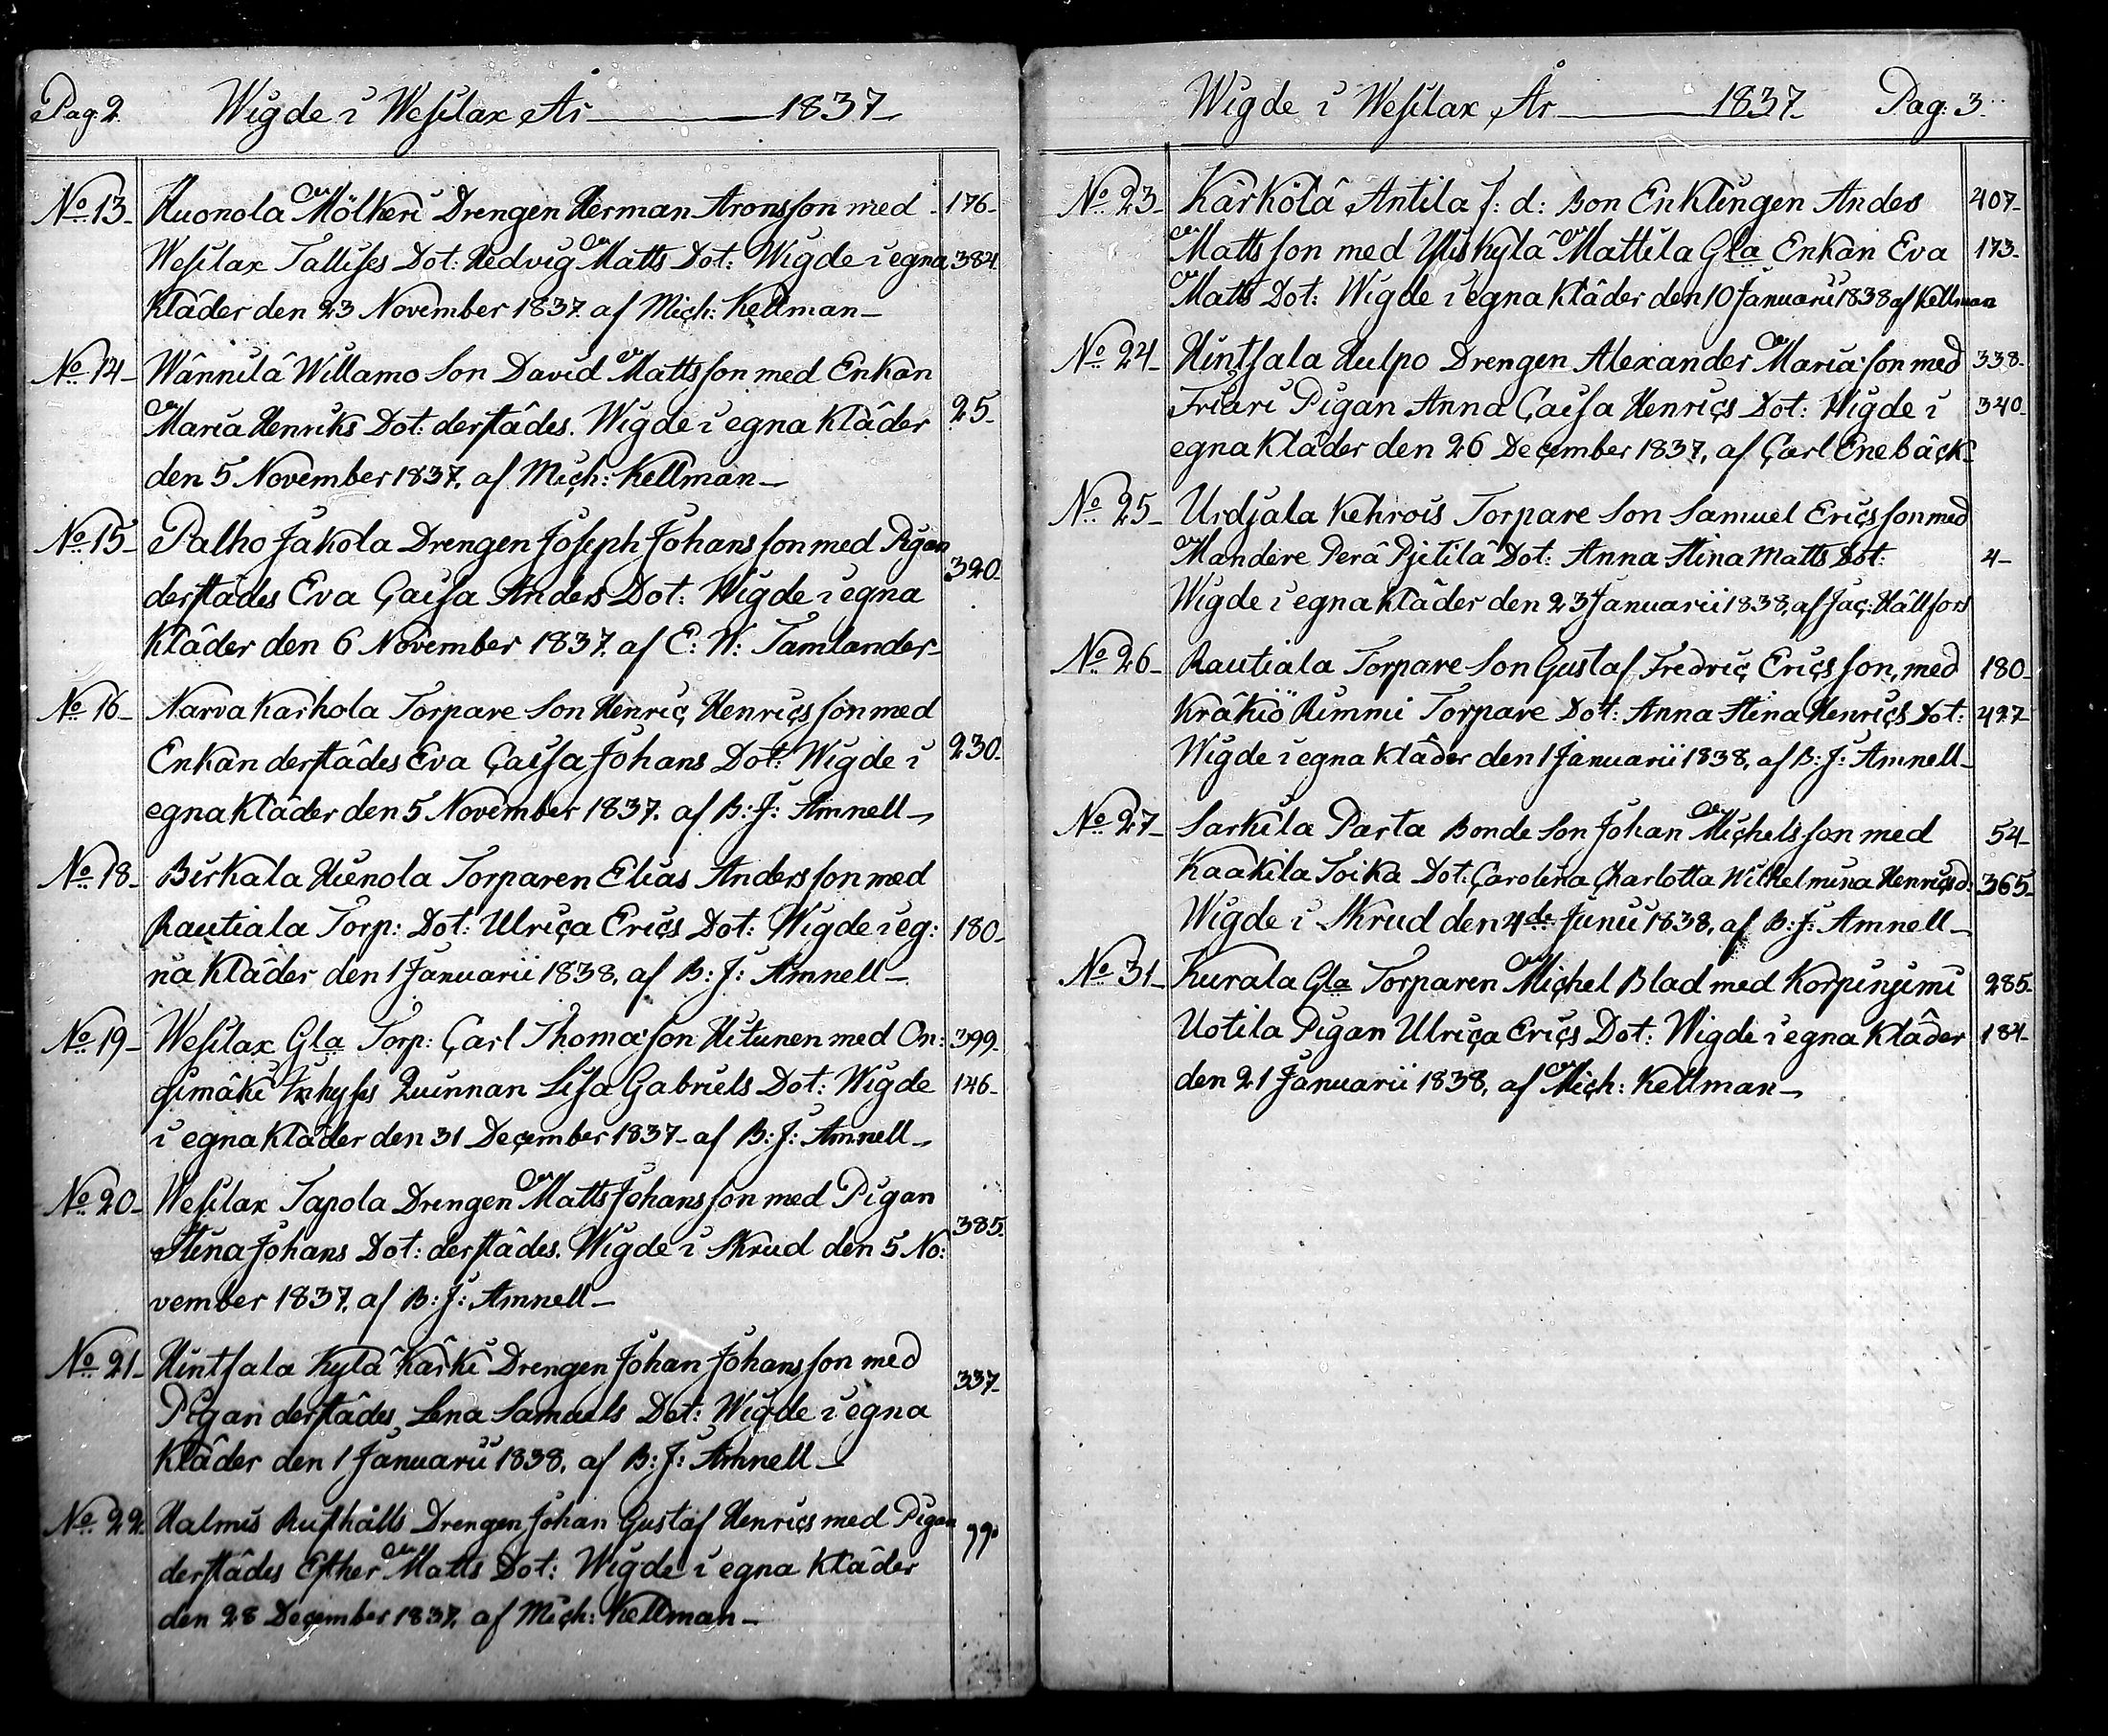 Pag: 2. Wigde i Wesilax År 1837
No 13 Kuonola Mölkeri Drengen Herman Aronsson med 176
Wesilax Tallises Dot: Hedvig Matts Dot: Wigde i egna 384
Kläder den 23 November 1837 af Mich: Kellman
No 14 Wännilä Willamo Son David Mattsson med Enkan
Maria Henriks Dot: derstädes. Wigde i egna Kläder 25
den 5 November 1837. af Mich: Kellman
No 15 Palho Jakola Drengen Joseph Johansson med Pigan
derstädes Eva Caisa Anders Dot: Wigde i egna 320
Kläder den 6 November 1837. af E: W: Tamlander
No 16 Narva Karhola Torpare Son Henric Henricsson med
Enkan derstädes Eva Caisa Johans Dot: Wigde i 230
egna Kläder den 5 November 1837. af B: J: Amnell
No 18 Birkala Hienola Torparen Elias Andersson med
Rautiala Torp: Dot: Ulrica Erics Dot: Wigde i eg: 180
na Kläder den 1 Januarii 1838, af B: J: Amnell
No 19 Wesilax Gla Torp: Carl Thomasson Hitunen med On: 399
gimäki Quinnan Lisa Gabriels Dot: Wigde 146
i egna Kläder den 31 December 1837 af B: J: Amnell
No 20 Wesilax Tapola Drengen Matts Johansson med Pigan
Stina Johans Dot: derstädes. Wigde i Skrud den 5 No: 385
vember 1837. af B: J: Amnell
No 21 Hintsala Kylä Karki Drengen Johan Johansson med 337
Pigan derstädes Lena Samuels Dot: Wigde i egna
Kläder den 1 Januarii 1838. af B: J: Amnell
No 22 Halmis Rusthålls Drengen Johan Gustaf Henrics med Pigan 99
derstädes Esther Matts Dot: Wigde i egna Kläder
den 28 December 1837. af Mich: Kellman
Wigde i Wesilax År 1837 Pag: 3
No 23 Kärkölä Antila f: d: Bon Enklingen Andes 407
Mattsson med Yliskylä Mattila Gla Enkan Eva 173
Matts Dot: Wigde i egna Kläder den 10 Januarii 1838 af Kellman
No 24 Hintsala Hulpo Drengen Alexander Mariason med 338
Friari Pigan Anna Caisa Henrics Dot: Wigde i 340
egna Kläder den 26 December 1837, af Carl Enebäck
No 25 Urdjala Kehrois Torpare Son Samuel Ericsson med
Mandere Perä Pjetilä Dot: Anna Stina Matts Dot: 4
Wigde i egna Kläder den 23 Januarii 1838, af Jac: Hällfors
No 26 Rautiala Torpare Son Gustaf Fredric Ericsson, med 180
Kräkiö Rimmi Torpare Dot: Anna Stina Henrics Dot: 427
Wigde i egna Kläder den 1 Januarii 1838, af B: J: Amnell
No 27 Sarkila Parta Bonde Son Johan Michelsson med 54
Kaakila Toika Dot: Carolina Charlotta Wilhelmina Henricsd: 365
Wigde i Skrud den 4de Junii 1838, af B: J: Amnell
No 31 Kurala Gla Torparen Michel Blad med Korpinjimi 285
Uotila Pigan Ulrica Erics Dot: Wigde i egna Kläder 184
den 21 Januarii 1838, af Mich: Kellman